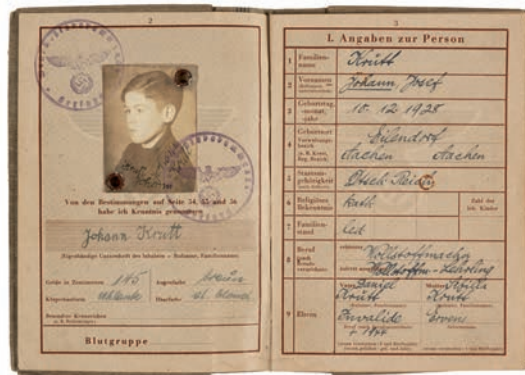 2
Von den Bestimmungen auf Seite 54, 55 und 56
habe ich Kenntnis genommen
Johann Krutt
(Eigenhändige Unterschrift des Inhabers – Rufname, Familienname)
Größe in Zentimetern 145 Augenfarbe braun
Körpergestalt schlank Haarfarbe
Besondere Kennzeichen
Blutgruppe
3
I. Angaben zur Person
1 Familien-
name Krutt
2 Vornamen Johann, Josef
3 Geburtstag,
-monat,
-jahr 10. 12. 1928
4 Geburtsort Eilendorf
Aachen Aachen
5 Staatsan-
gehörigkeit Dtsch. Reich
6 Religiöses
Bekenntnis Kath. Zahl der
leb. Kinder
7 Familien-
stand led
8 Beruf
Lehrling
9 Eltern Daniel
Krutt Krutt
Invalide